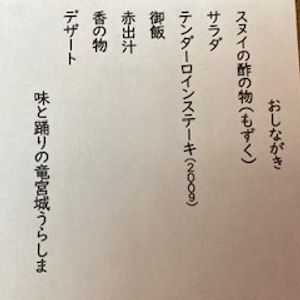 おしながき
スヌイの酢の物(もずく)
サラダ
テンダーロインステーキ(200g)
御飯
赤出汁
香の物
デザート
味と踊りの竜宮城うらしま